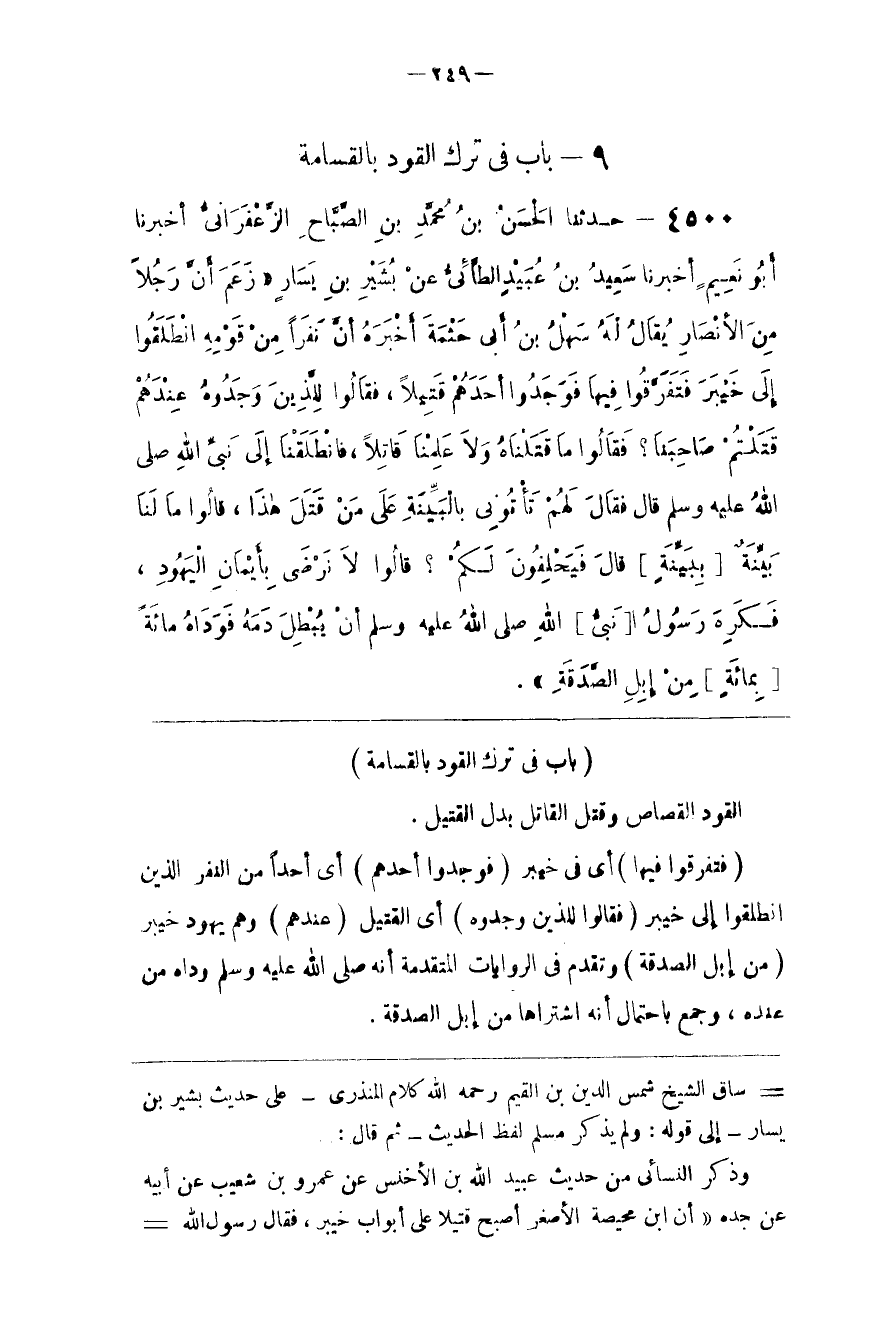 — ٢٤٩ —
٩ — باب فى ترك القود بالقسامة
٤٥٠٠ — حـدثنا الْحَسَنُ بنُ مُحمَّدِ بنِ الصَّبَّاحِ الزَّعْفَرَانىُّ أخبرنا
أَبُو نَعِيمٍ أخبرنا سَعِيدُ بنُ عُبَيْدٍ الطَّائىُّ عنْ بُشَيْرِ بنِ يَسَارٍ « زَعَمَ أَنَّ رَجُلاً
مِنَ الأنْصَارِ يُقَالُ لَهُ سَهْلُ بنُ أَبى حَثْمَةَ أَخْبَرَهُ أنَّ نَفَراً مِنْ قَوْمِهِ انْطَلَقُوا
إلَى خَيْبَرَ فَتَفَرَّقُوا فِيهَا فَوَجَدُوا أحَدَهُمْ قَتِيلاً ، فقَالُوا لِلَّذِينَ وَجَدُوهُ عِنْدَهُمْ
قَتَلْتُمْ صَاحِبَنَا ؟ فَقَالُوا مَا قَتَلْنَاهُ وَلاَ عَلِمْنَا قَاتِلاً ، فانْطَلَقْنَا إلَى نَبىِّ اللهِ صلى
اللهُ عليه وسلم قال فقَالَ لَهُمْ تَأْتُونِى بالْبَيِّنَةِ عَلَى مَنْ قَتَلَ هٰذَا ، قالُوا مَا لَنَا
بَيِّنَةٌ [ بِبَيِّنَةٍ ] قالَ فَيَحْلِفُونَ لَـكُمْ ؟ قالُوا لاَ نَرْضَى بِأَيْمَانِ الْيَهُودِ ،
فَـكَرِهَ رَسُولُ [ نَبىُّ ] اللهِ صلى اللهُ عليه وسلم أنْ يُبْطِلَ دَمَهُ فَوَدَاهُ مائَةً
[ بِمائَةٍ ] مِنْ إبِلِ الصَّدَقَةِ » .
( باب فى ترك القود بالقسامة )
القود القصاص وقتل القاتل بدل القتيل .
( فتفرقوا فيها ) أى فى خيبر ( فوجدوا أحدهم ) أى أحداً من النفر الذين
انطلقوا إلى خيبر ( فقالوا للذين وجدوه ) أى القتيل ( عندهم ) وهم يهود خيبر
( من إبل الصدقة ) وتقدم فى الروايات المتقدمة أنه صلى الله عليه وسلم وداه من
عنده ، وجمع باحتمال أنه اشتراها من إبل الصدقة .
= ساق الشيخ شمس الدين بن القيم رحمه الله كلام المنذرى – على حديث بشير بن
يسار – إلى قوله : ولم يذكر مسلم لفظ الحديث – ثم قال :
وذكر النسائى من حديث عبيد الله بن الأخنس عن عمرو بن شعيب عن أبيه
عن جده « أن ابن محيصة الأصغر أصبح قتيلا على أبواب خيبر ، فقال رسول الله =